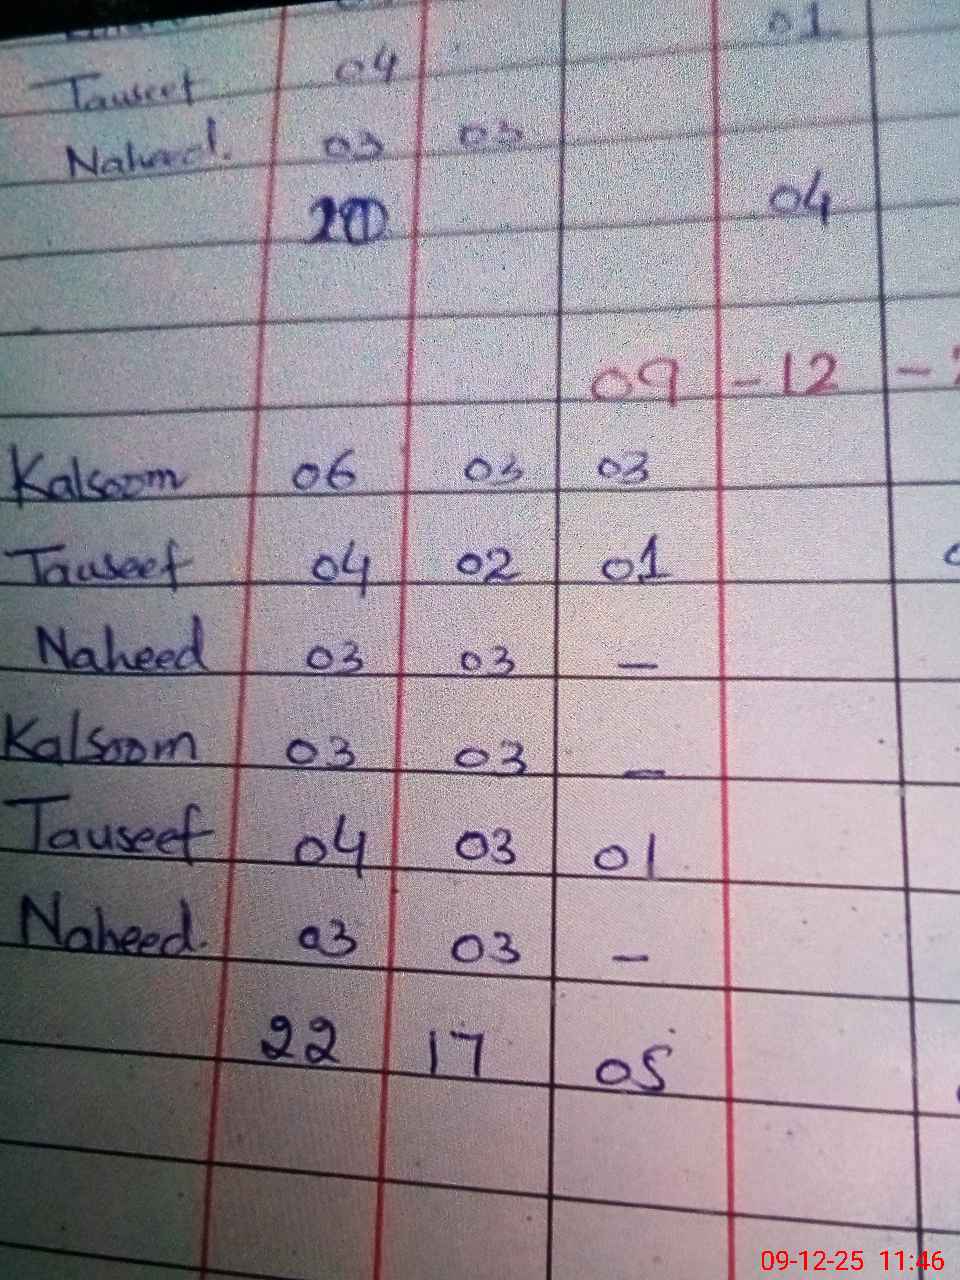 01
Tauseef 04
Naheed. 03 03
04
09 - 12 -
Kalsoom 06 03 03
Tauseef 04 02 01
Naheed 03 03 —
Kalsoom 03 03 —
Tauseef 04 03 01
Naheed. 03 03 —
22 17 05
09-12-25 11:46